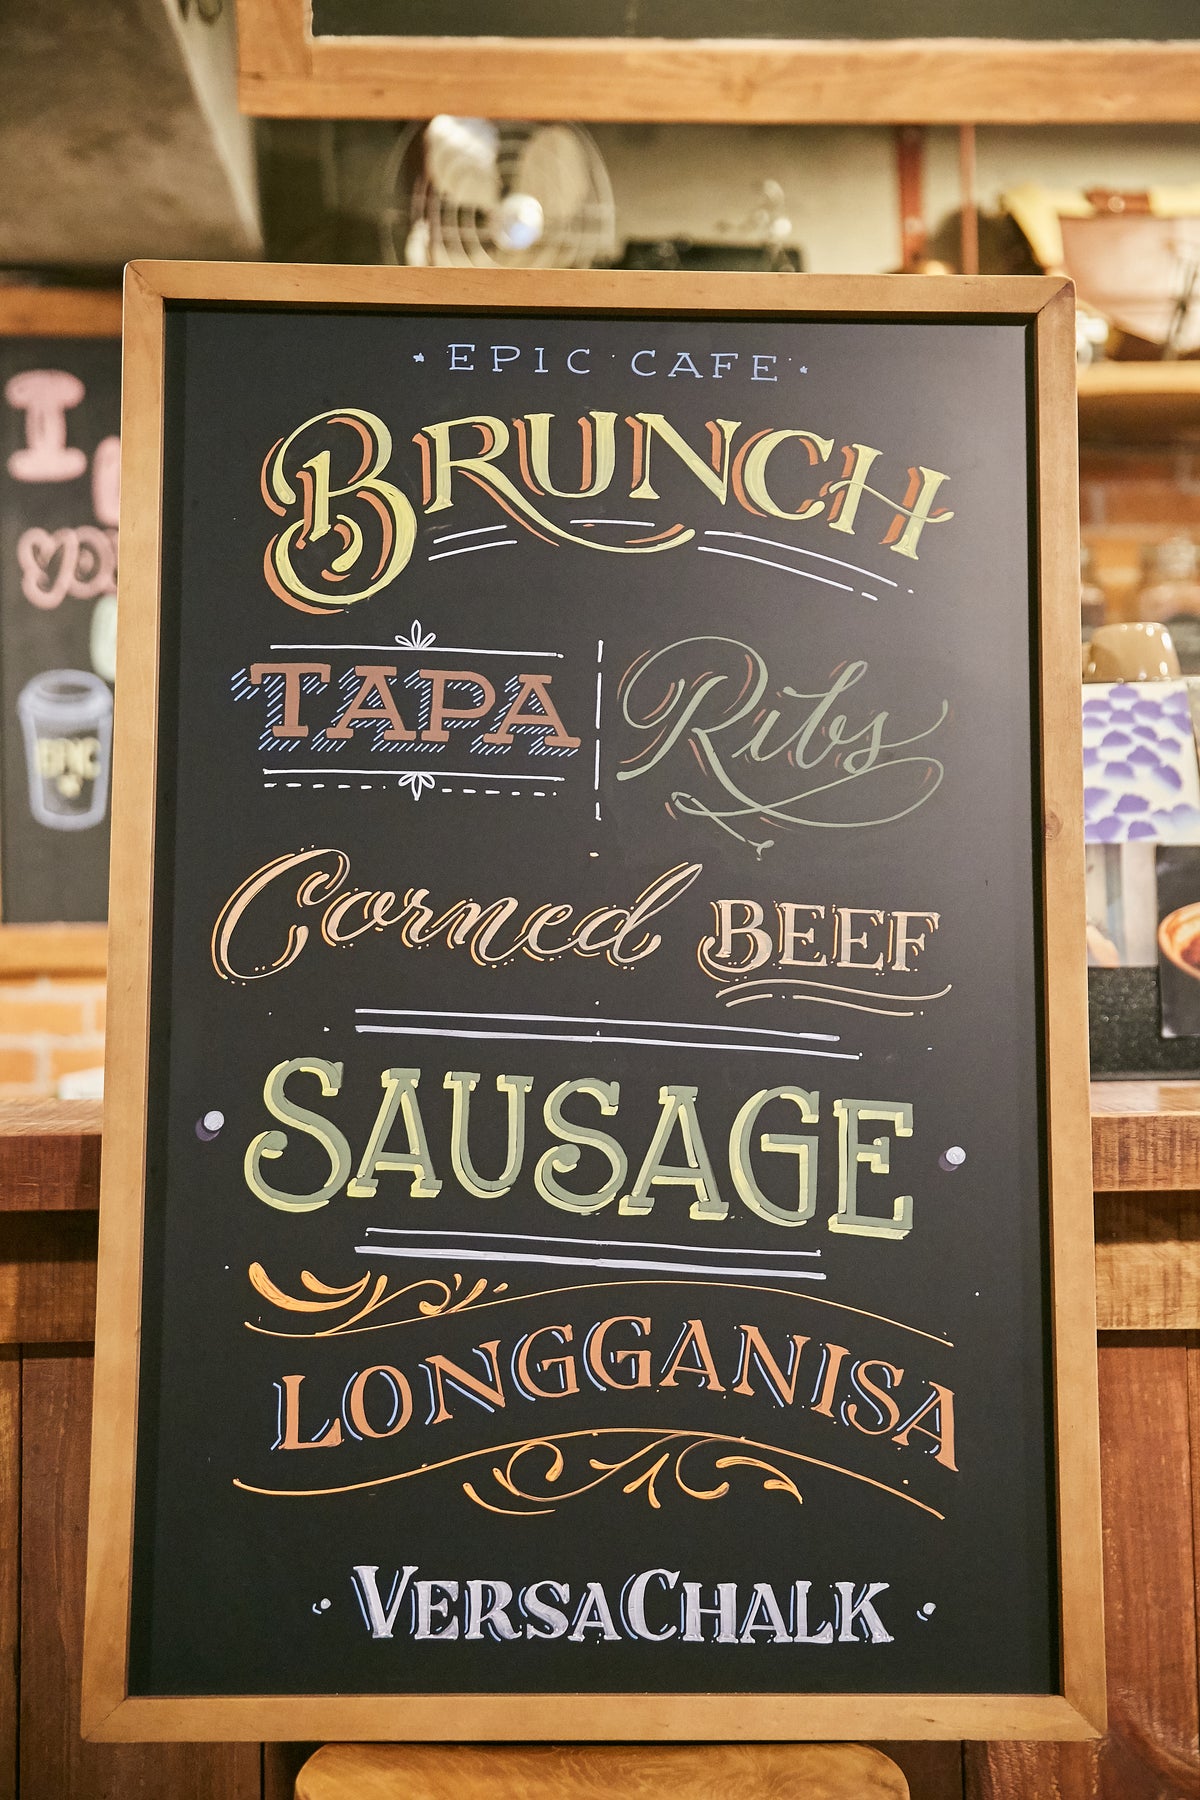 EPIC CAFE
BRUNCH
TAPA Ribs
Corned BEEF
SAUSAGE
LONGGANISA
VERSACHALK
I
YOU
EPIC